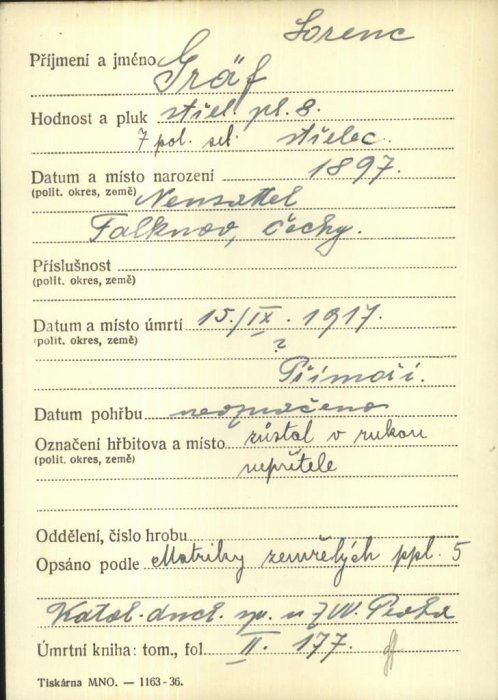 Lorenc
Příjmení a jméno Gräf
Hodnost a pluk střel. pl. 8.
7 pol. set. střelec.
Datum a místo narození 1897.
(polit. okres, země) Neusattel
Falknov, Čechy.
Příslušnost
(polit. okres, země)
Datum a místo úmrtí 15./IX. 1917.
(polit. okres, země) ?
Přímoří.
Datum pohřbu neoznačeno
Označení hřbitova a místo zůstal v rukou
(polit. okres, země) nepřítele
Oddělení, číslo hrobu
Opsáno podle Matriky zemřelých ppl. 5
Katol. duch. sp. u ZVV. Praha
Úmrtní kniha: tom., fol. II. 177.
Tiskárna MNO. — 1163-36.